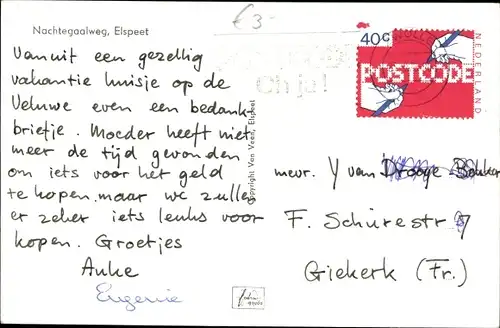 €3-
Nachtegaalweg, Elspeet
Vanuit een gezellig
vakantie huisje op de
Veluwe even een bedank-
briefje. Moeder heeft niet
meer de tijd gevonden
om iets voor het geld
te kopen. maar we zullen
er zeker iets leuks voor
kopen. Groetjes
Anke
Eugenie
Copyright Van Veen, Elspeet
Oh ja!
40c
NEDERLAND
POSTCODE
mevr. Y van
F. Schurestr
Giekerk (Fr.)